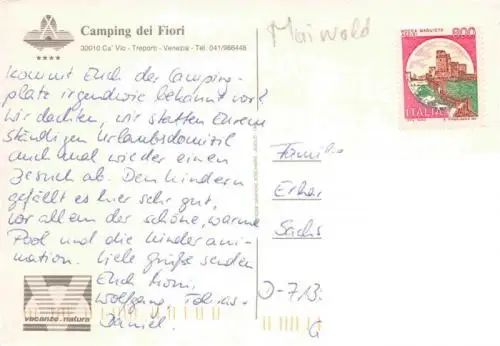 Camping dei Fiori
30010 Ca' Vio - Treporti - Venezia - Tel. 041/966448
Maiwald
800
ITALIA
kommt Euch der Camping-
platz irgendwie bekannt vor?
Wir dachten, wir statten Eurem
ständigen Urlaubsdomizil
auch mal wieder einen
Besuch ab. Den Kindern
gefällt es hier sehr gut,
vor allem der schöne, warme
Pool und die Kinderani-
mation. Liebe Grüße senden
Euch Moni,
Wolfgang, Tobias,
Daniel.
Familie
Erhar
Sachs
D-713
vacanze natura